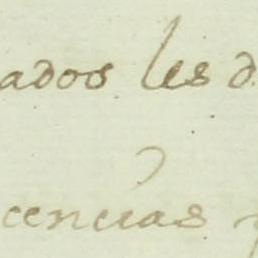 ados les d
cencias